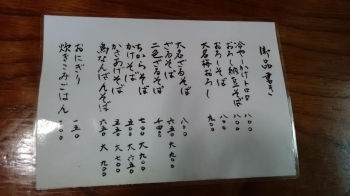 御品書き
冷やしかけトロロ 八〇〇
おろし納豆そば 八〇〇
おろしそば 八〇〇
大名梅おろし 九〇〇
大名ざるそば 八〇〇
ざるそば 六五〇 大 九〇〇
二色ざるそば
ちからそば 七〇〇 大 九〇〇
かけそば 五五〇 大 六五〇
かきあげそば 五五〇 大 七〇〇
鳥なんばんそば 六五〇 大 九〇〇
おにぎり 一五〇
炊きこみごはん 二〇〇